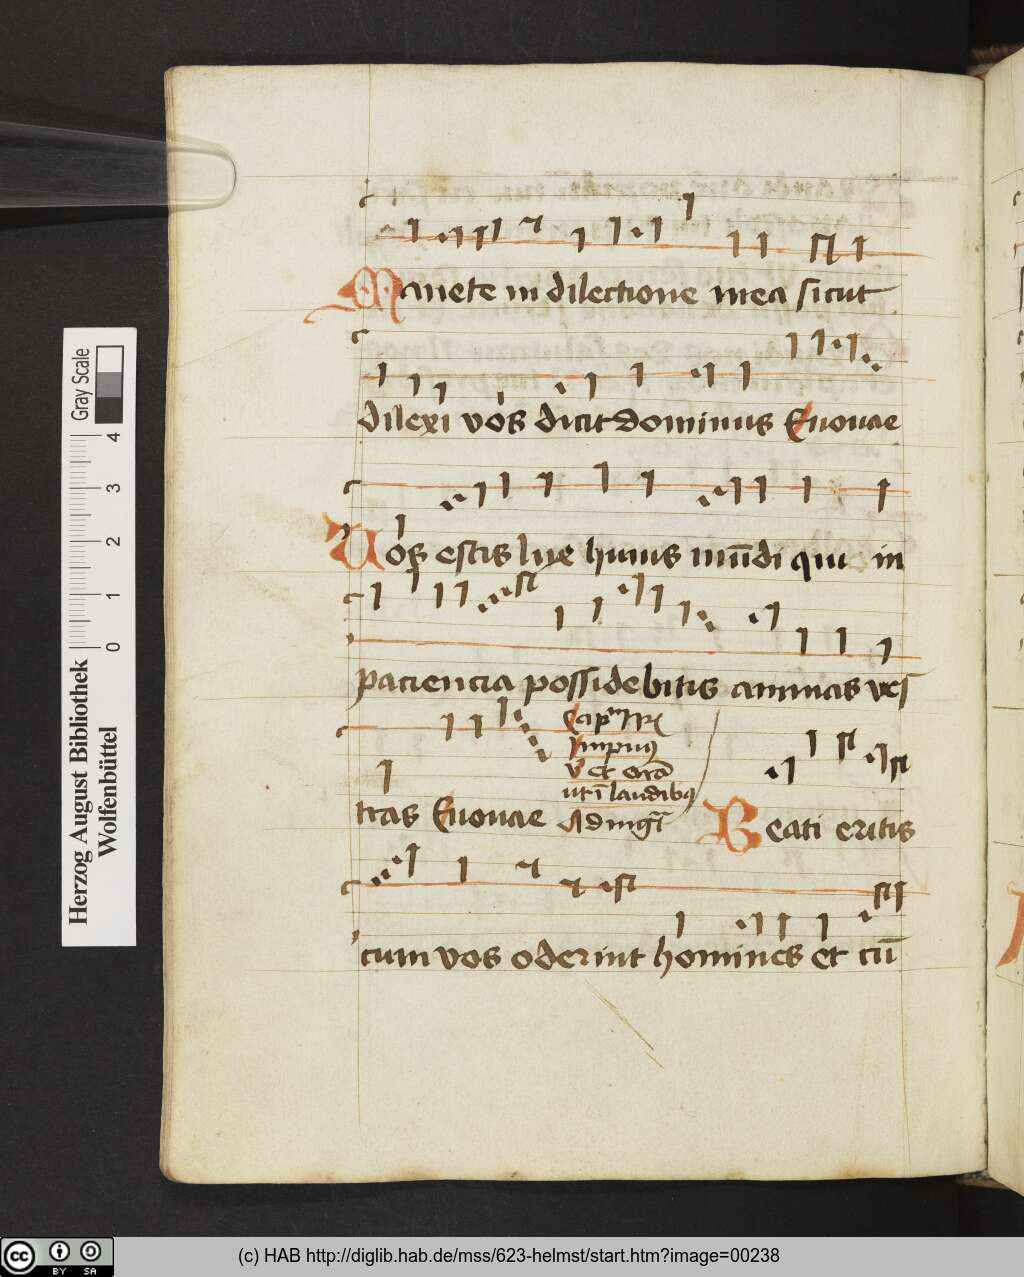 Manete in dilectione mea sicut
dilexi vos dicit dominus Euouae
Vos estis lux huius mūdi qui in
paciencia possidebitis animas ves
tras Euouae
ut ī laudibꝰ
Beati eritis
cum vos oderint homines et cū
Herzog August Bibliothek
Wolfenbüttel
0 1 2 3 4
Gray Scale
cc BY SA
(c) HAB http://diglib.hab.de/mss/623-helmst/start.htm?image=00238